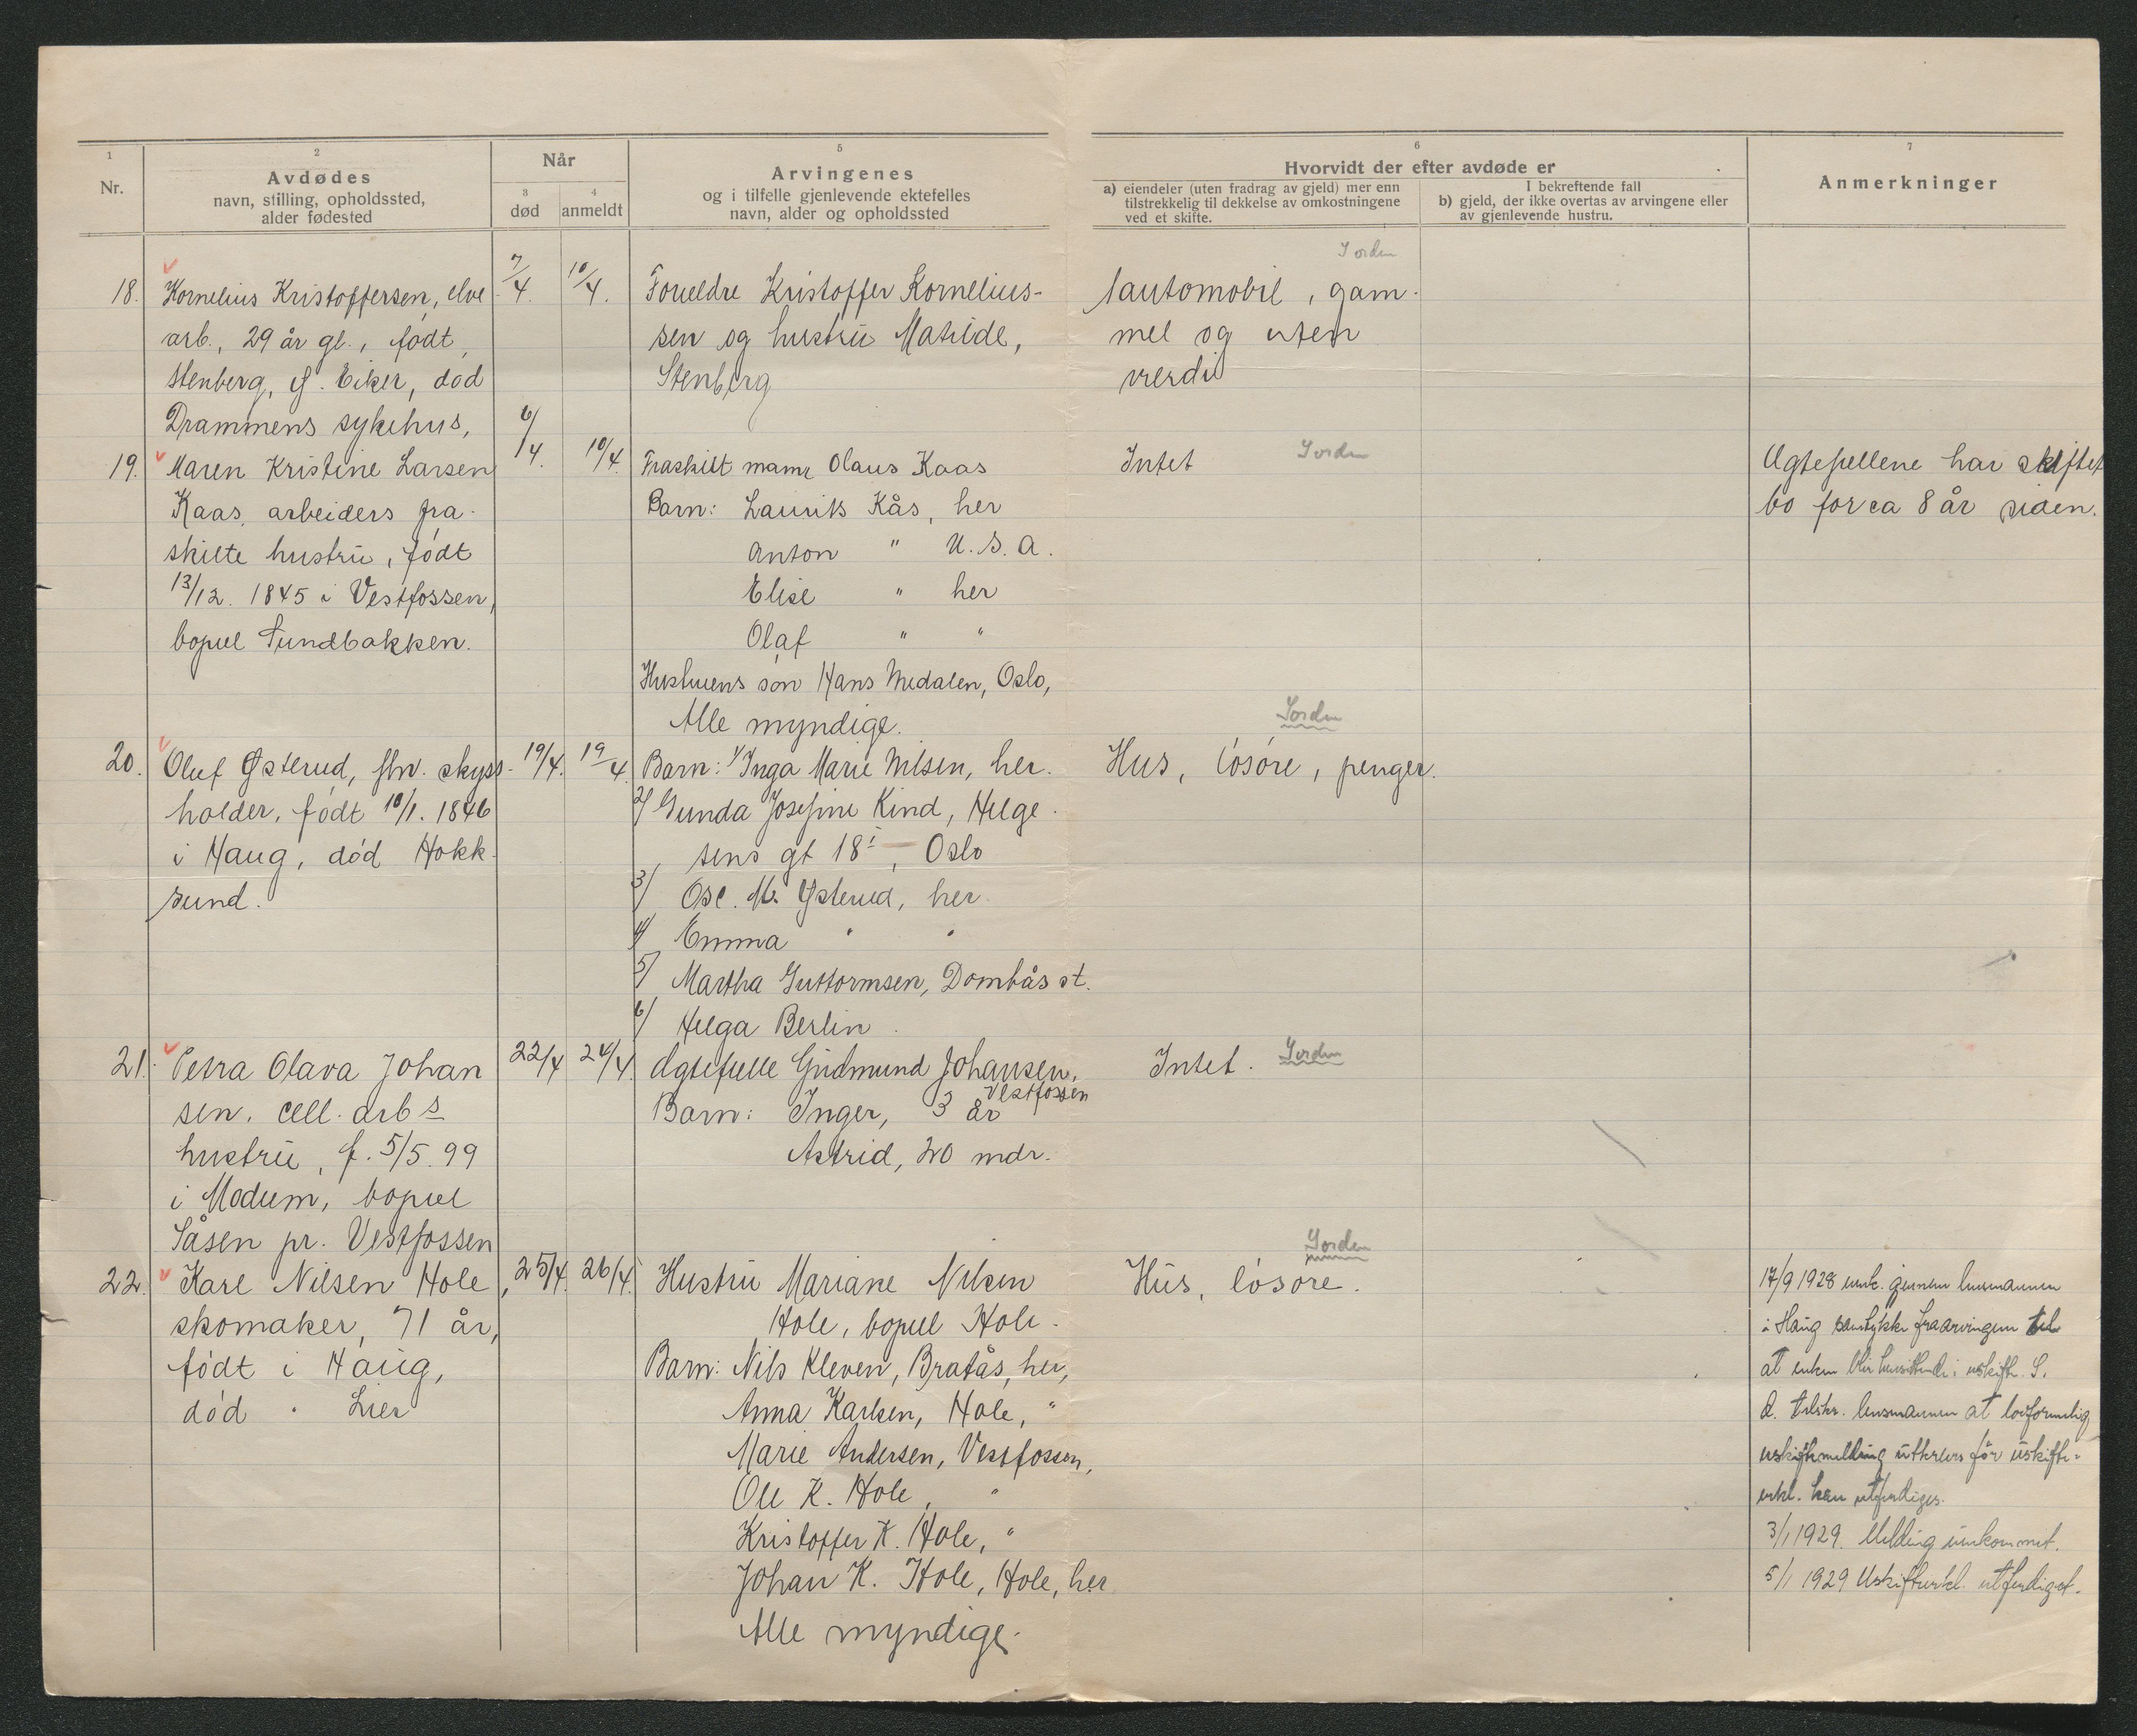 1
Nr.
2
Avdødes
navn, stilling, opholdssted,
alder fødested
Når
3
død
4
anmeldt
5
Arvingenes
og i tilfelle gjenlevende ektefelles
navn, alder og opholdssted
6
Hvorvidt der efter avdøde er
a) eiendeler (uten fradrag av gjeld) mer enn
tilstrekkelig til dekkelse av omkostningene
ved et skifte.
I bekreftende fall
b) gjeld, der ikke overtas av arvingene eller
av gjenlevende hustru.
7
Anmerkninger
18.
Kornelius Kristoffersen, elve
arb., 29 år gl., født
Stenberg, Ø. Eiker, død
Drammens sykehus,
7/4.
10/4.
Foreldre Kristoffer Kornelius-
sen og hustru Matilde,
Stenberg
Jorden
1 automobil, gam-
mel og uten
verdi
19.
Maren Kristine Larsen
Kaas, arbeiders fra-
skilte hustru, født
13/12. 1845 i Vestfossen,
bopæl Sundbakken.
6/4.
10/4.
Fraskilt mann Olaus Kaas
Barn: Laurits Kås, her
Anton " U.S.A.
Elise " her
Olaf " "
Hustruens søn Hans Medalen, Oslo,
Alle myndige.
Intet
Jorden
Egtefellene har skiftet
bo for ca 8 år siden.
20.
Oluf Østerud, fhv. skyss-
holder, født 10/1. 1846
i Haug, død Hokk-
sund.
19/4.
19/4.
Barn: 1/ Inga Marie Nilsen, her.
2/ Gunda Josefine Kind, Helge-
sens gt 18 I, Oslo
3/ Osc. M. Østerud, her.
4/ Emma " "
5/ Martha Guttormsen, Dombås st.
6/ Helga Berlin.
Jorden
Hus, løsøre, penger.
21.
Petra Olava Johan
sen, cell. arbs
hustru, f. 5/5. 99
i Modum, bopæl
Såsen pr. Vestfossen
22/4
24/4.
Egtefelle Gudmund Johansen,
Vestfossen
Barn: Inger, 3 år
Astrid, 20 mdr.
Intet.
Jorden
22.
Karl Nilsen Hole,
skomaker, 71 år,
født i Haug,
død " Lier
25/4.
26/4.
Hustru Mariane Nilsen
Hole, bopæl Hole.
Barn: Nils Kleven, Bratås, her,
Anna Karlsen, Hole, "
Marie Andersen, Vestfossen,
Ole K. Hole, "
Kristoffer K. Hole, "
Johan K. Hole, Hole, her
Alle myndige.
Jorden
Hus, løsøre.
17/9 1928 innk. gjennem lensmannen
i Haug samtykke fra arvingene til
at enken blir hensittende i uskifte. S.
d. tilskr. lensmannen at lovformelig
uskiftemelding utkreves før uskifte-
erkl. kan utferdiges.
3/1 1929. Melding innkommet.
5/1 1929 Uskifteerkl. utferdiget.